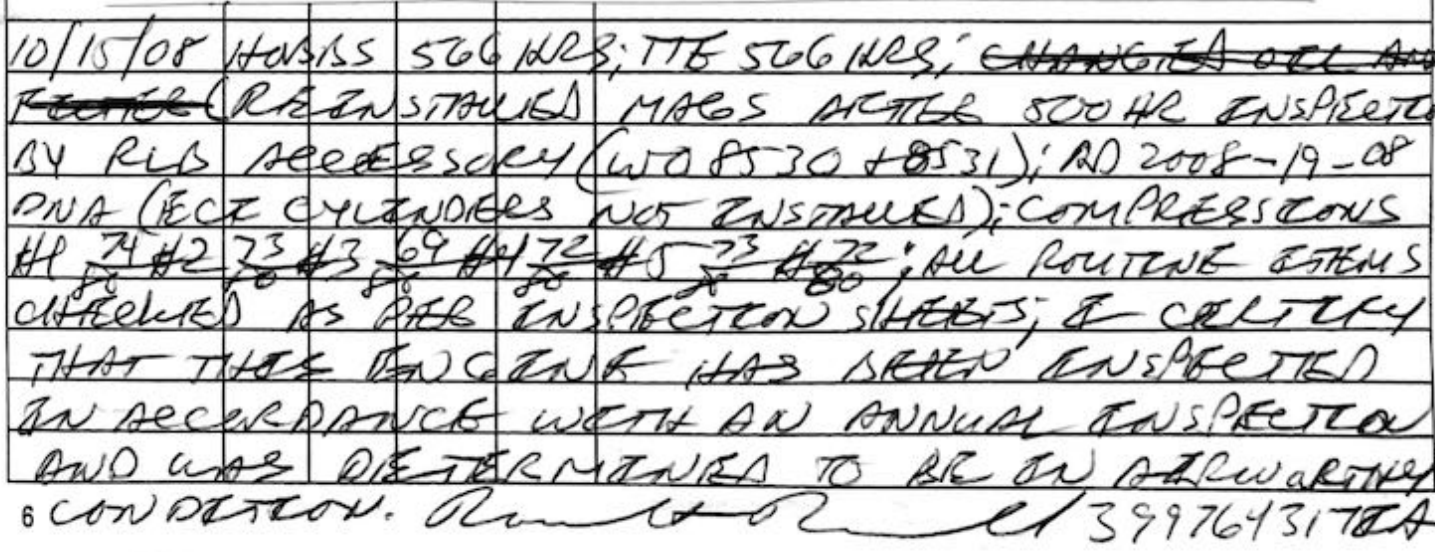 10/15/08 HOBBS 566 HRS; TTE 566 HRS; CHANGED OIL AND
FILTER (REINSTALLED MAGS AFTER 500 HR INSPECTIO
BY RLB ACCESSORY (WO 8530 + 8531); AD 2008-19-08
DNA (ECI CYLINDERS NOT INSTALLED); COMPRESSIONS
#1 74/80 #2 73/80 #3 69/80 #4 72/80 #5 73/80 # 72/80; ALL ROUTINE ITEMS
CHECKED AS PER INSPECTION SHEETS; I CERTIFY
THAT THIS ENGINE HAS BEEN INSPECTED
IN ACCORDANCE WITH AN ANNUAL INSPECTION
AND WAS DETERMINED TO BE IN AIRWORTHY
6 CONDITION. 399764317IA